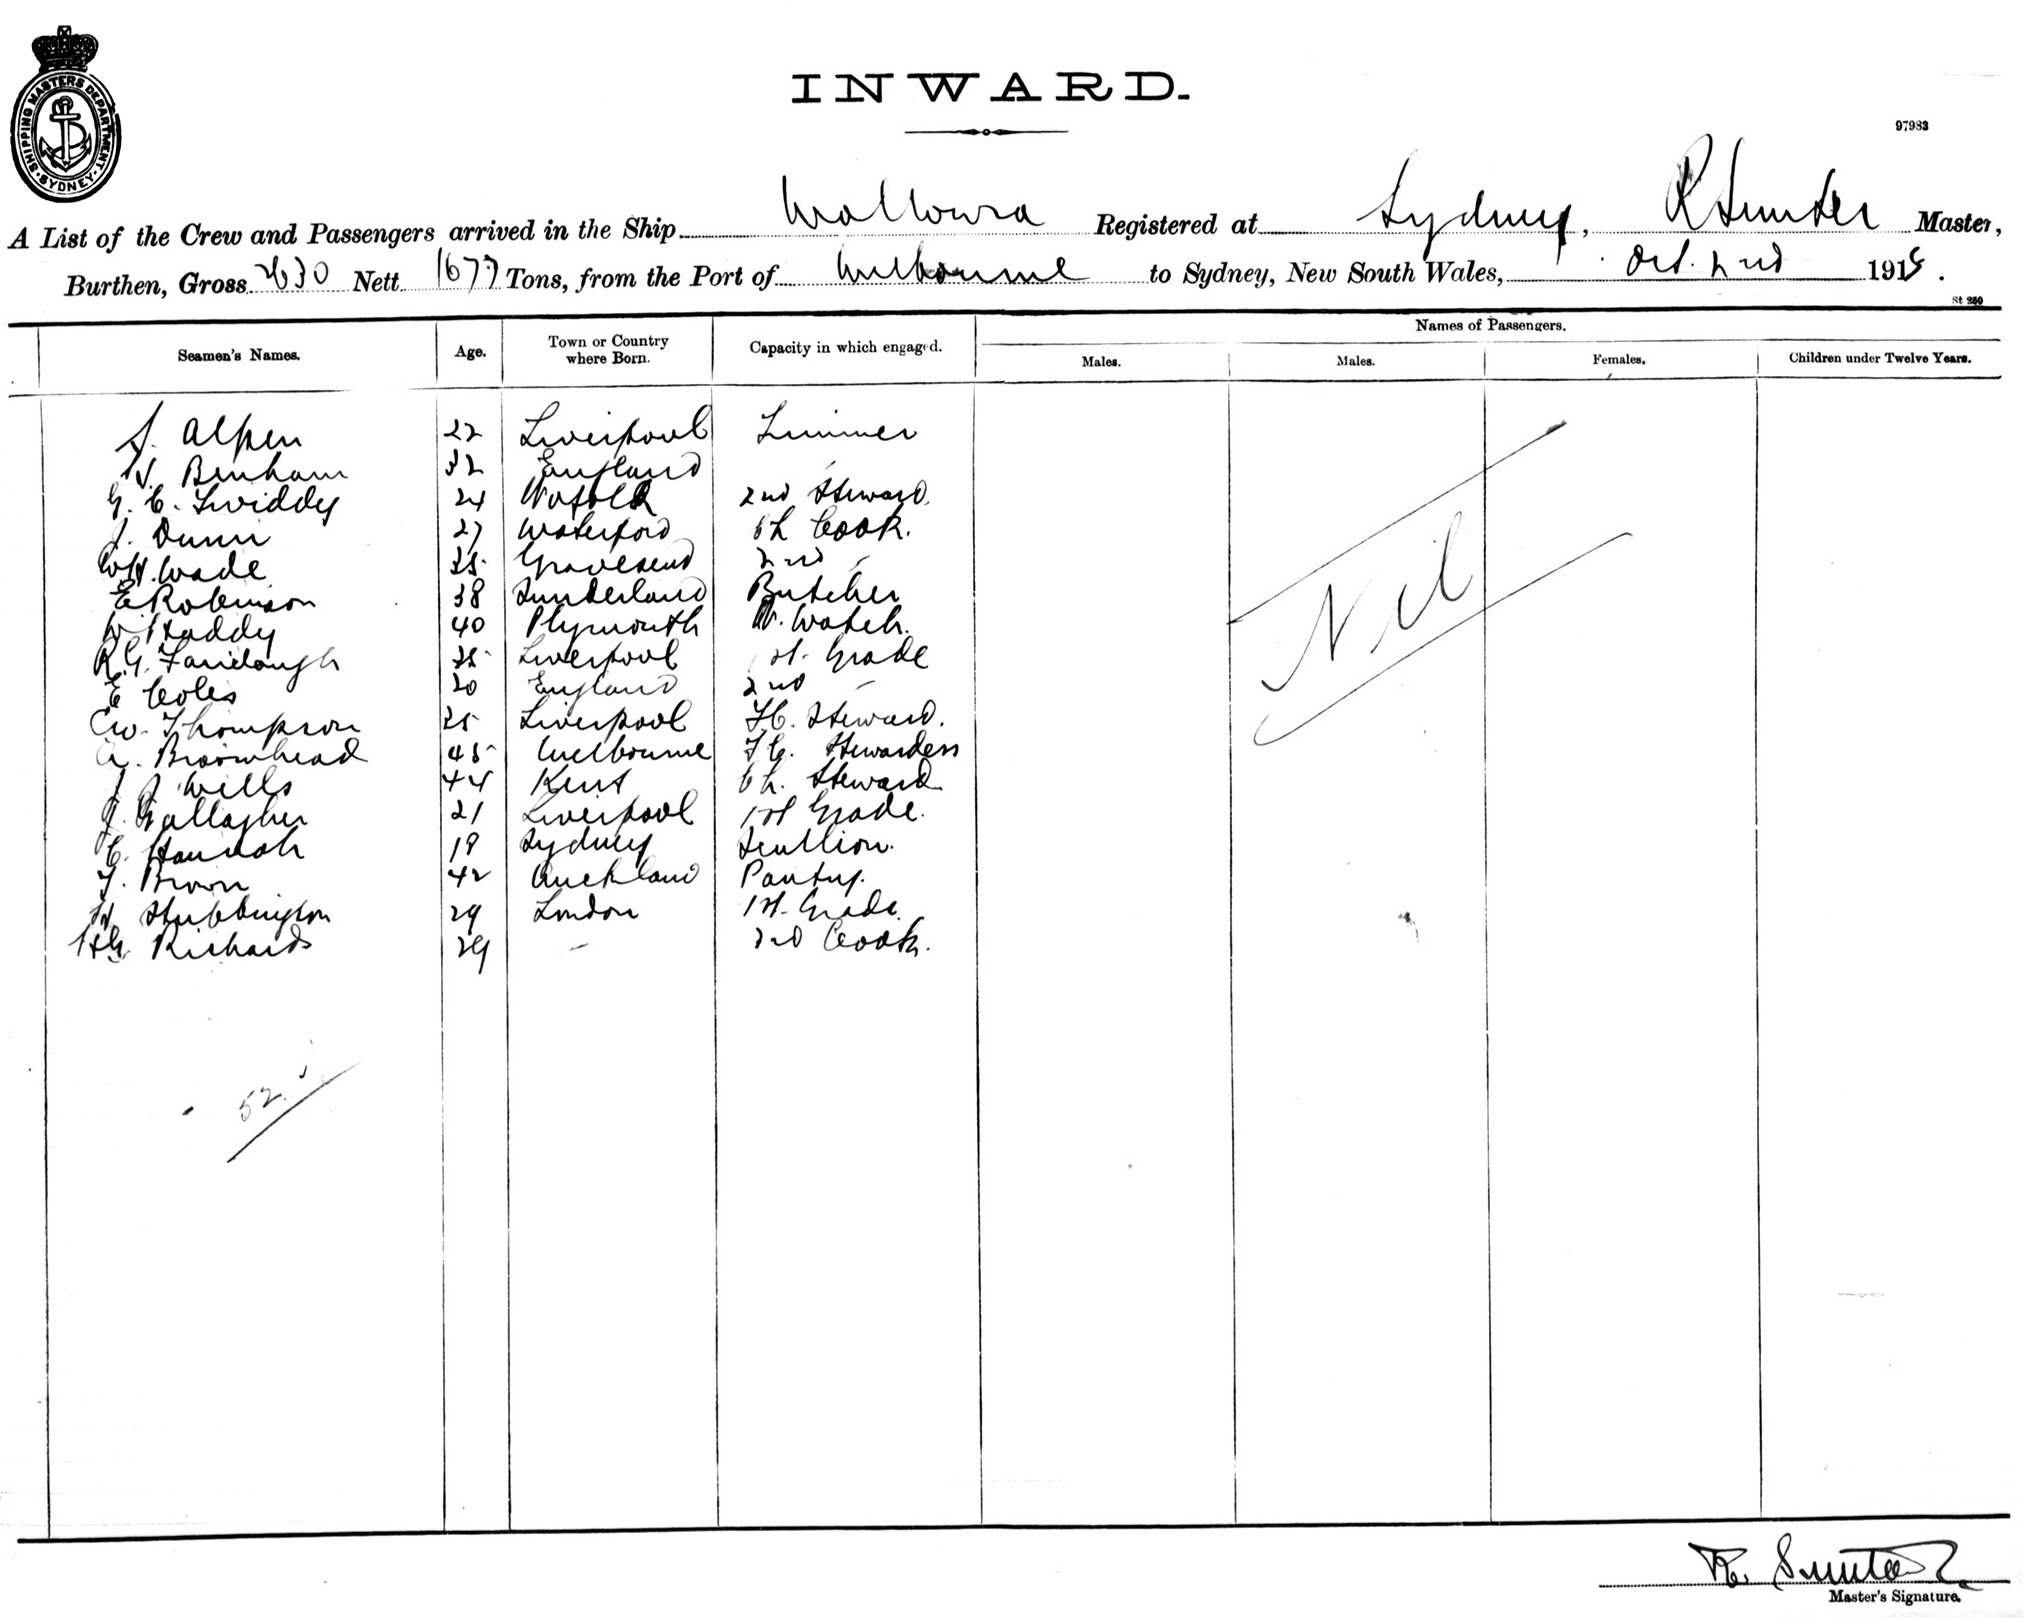 SHIPPING MASTERS DEPARTMENT
SYDNEY
INWARD.
97983
A List of the Crew and Passengers arrived in the Ship Wollowra Registered at Sydney, R Sunter Master,
Burthen, Gross 2630 Nett 1677 Tons, from the Port of Melbourne to Sydney, New South Wales, Oct. 2nd 191
St 250
Seamen's Names. Age. Town or Country where Born. Capacity in which engaged. Names of Passengers.
Males. Males. Females. Children under Twelve Years.
Alpen 22 Liverpool Trimmer
Benham 32 England
G. C. Twiddy 24 Norfolk 2nd Steward.
J. Dunn 27 Waterford Ch Cook.
WH. Wade 35 Gravesend 2nd "
E Robinson 38 Sunderland Butcher
W Haddy 40 Plymouth N. Watch.
R.G. Fairclough 25 Liverpool 1st. Grade
E Coles 20 England 2nd "
CW. Thompson 25 Liverpool F.C. Steward.
A. Broomhead 45 Melbourne F.C. Stewardess
J J Wells 44 Kent Ch. Steward
J. Gallagher 21 Liverpool 1st Grade.
C. Hannah 18 Sydney Scullion.
Brown 42 Auckland Pantry.
H Stubbington 29 London 1st. Grade.
HG Richards 29 - 2nd Cook.
Nil
52.
R. Sunter
Master's Signature.